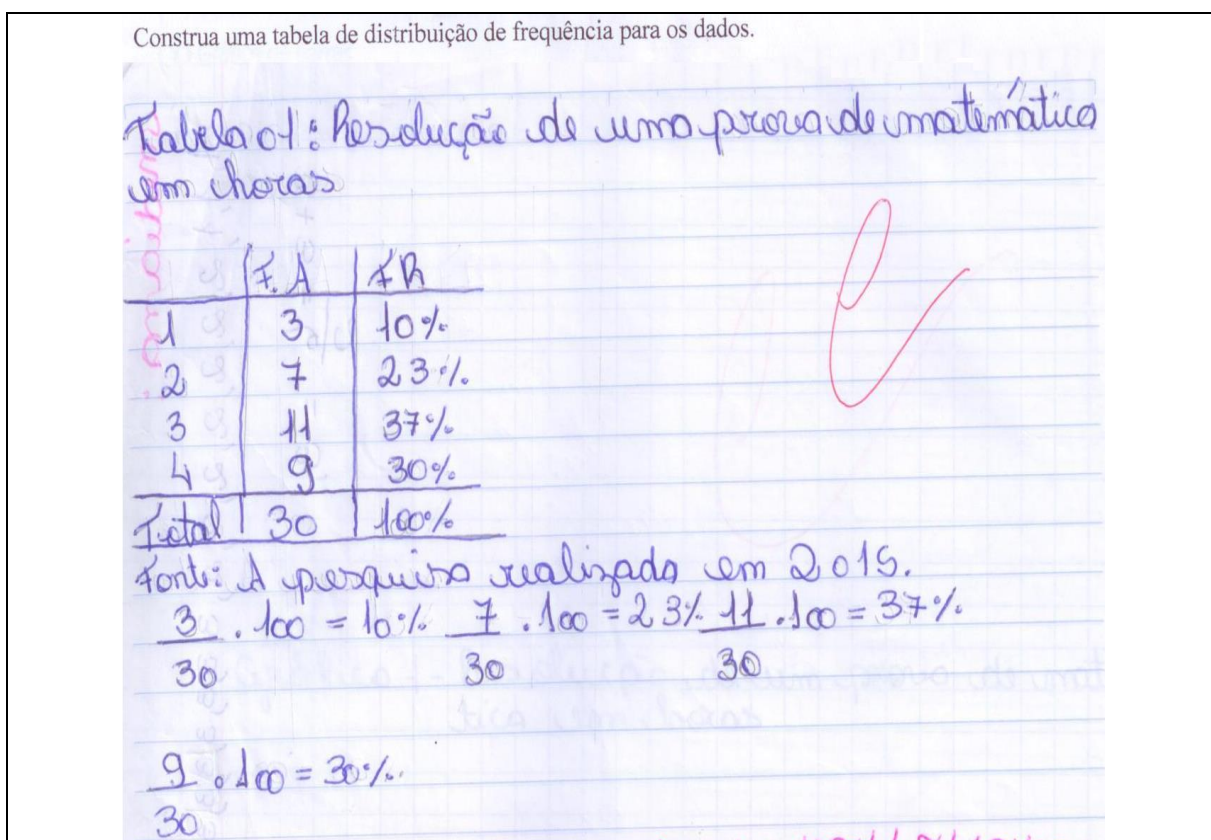 Construa uma tabela de distribuição de frequência para os dados.
Tabela 01: Resolução de uma prova de matemática
em horas
F.A FR
1 3 10%
2 7 23%
3 11 37%
4 9 30%
Total 30 100%
Fonte: A pesquisa realizada em 2015.
3/30 . 100 = 10% 7/30 . 100 = 23% 11/30 . 100 = 37%
9/30 . 100 = 30%